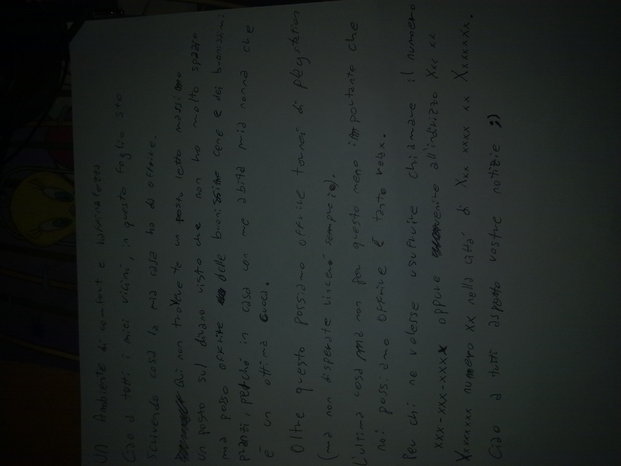 Un Ambiente di comfort e
Ciao a tutti i miei vicini, in questo foglio sto
scrivendo cosa la mia casa ha da offrire.
Qui non troverete un posto letto massimo
un posto sul divano visto che non ho molto spazio
ma posso offrire delle buonissime cene e dei buonissimi
pranzi, perché in casa con me abita mia nonna che
è un ottima cuoca.
Oltre questo possiamo offrire tornei di playstation
(ma non disperate vincerò sempre io).
L'ultima cosa ma non per questo meno importante che
noi possiamo offrire è tanto relax.
Per chi ne volesse usufruire chiamare il numero
xxx-xxx-xxxx oppure venire all'indirizzo Xxx xx
Xxxxxxxx numero xx nella città di Xxx xxxx xx Xxxxxxx.
Ciao a tutti aspetto vostre notizie ;)